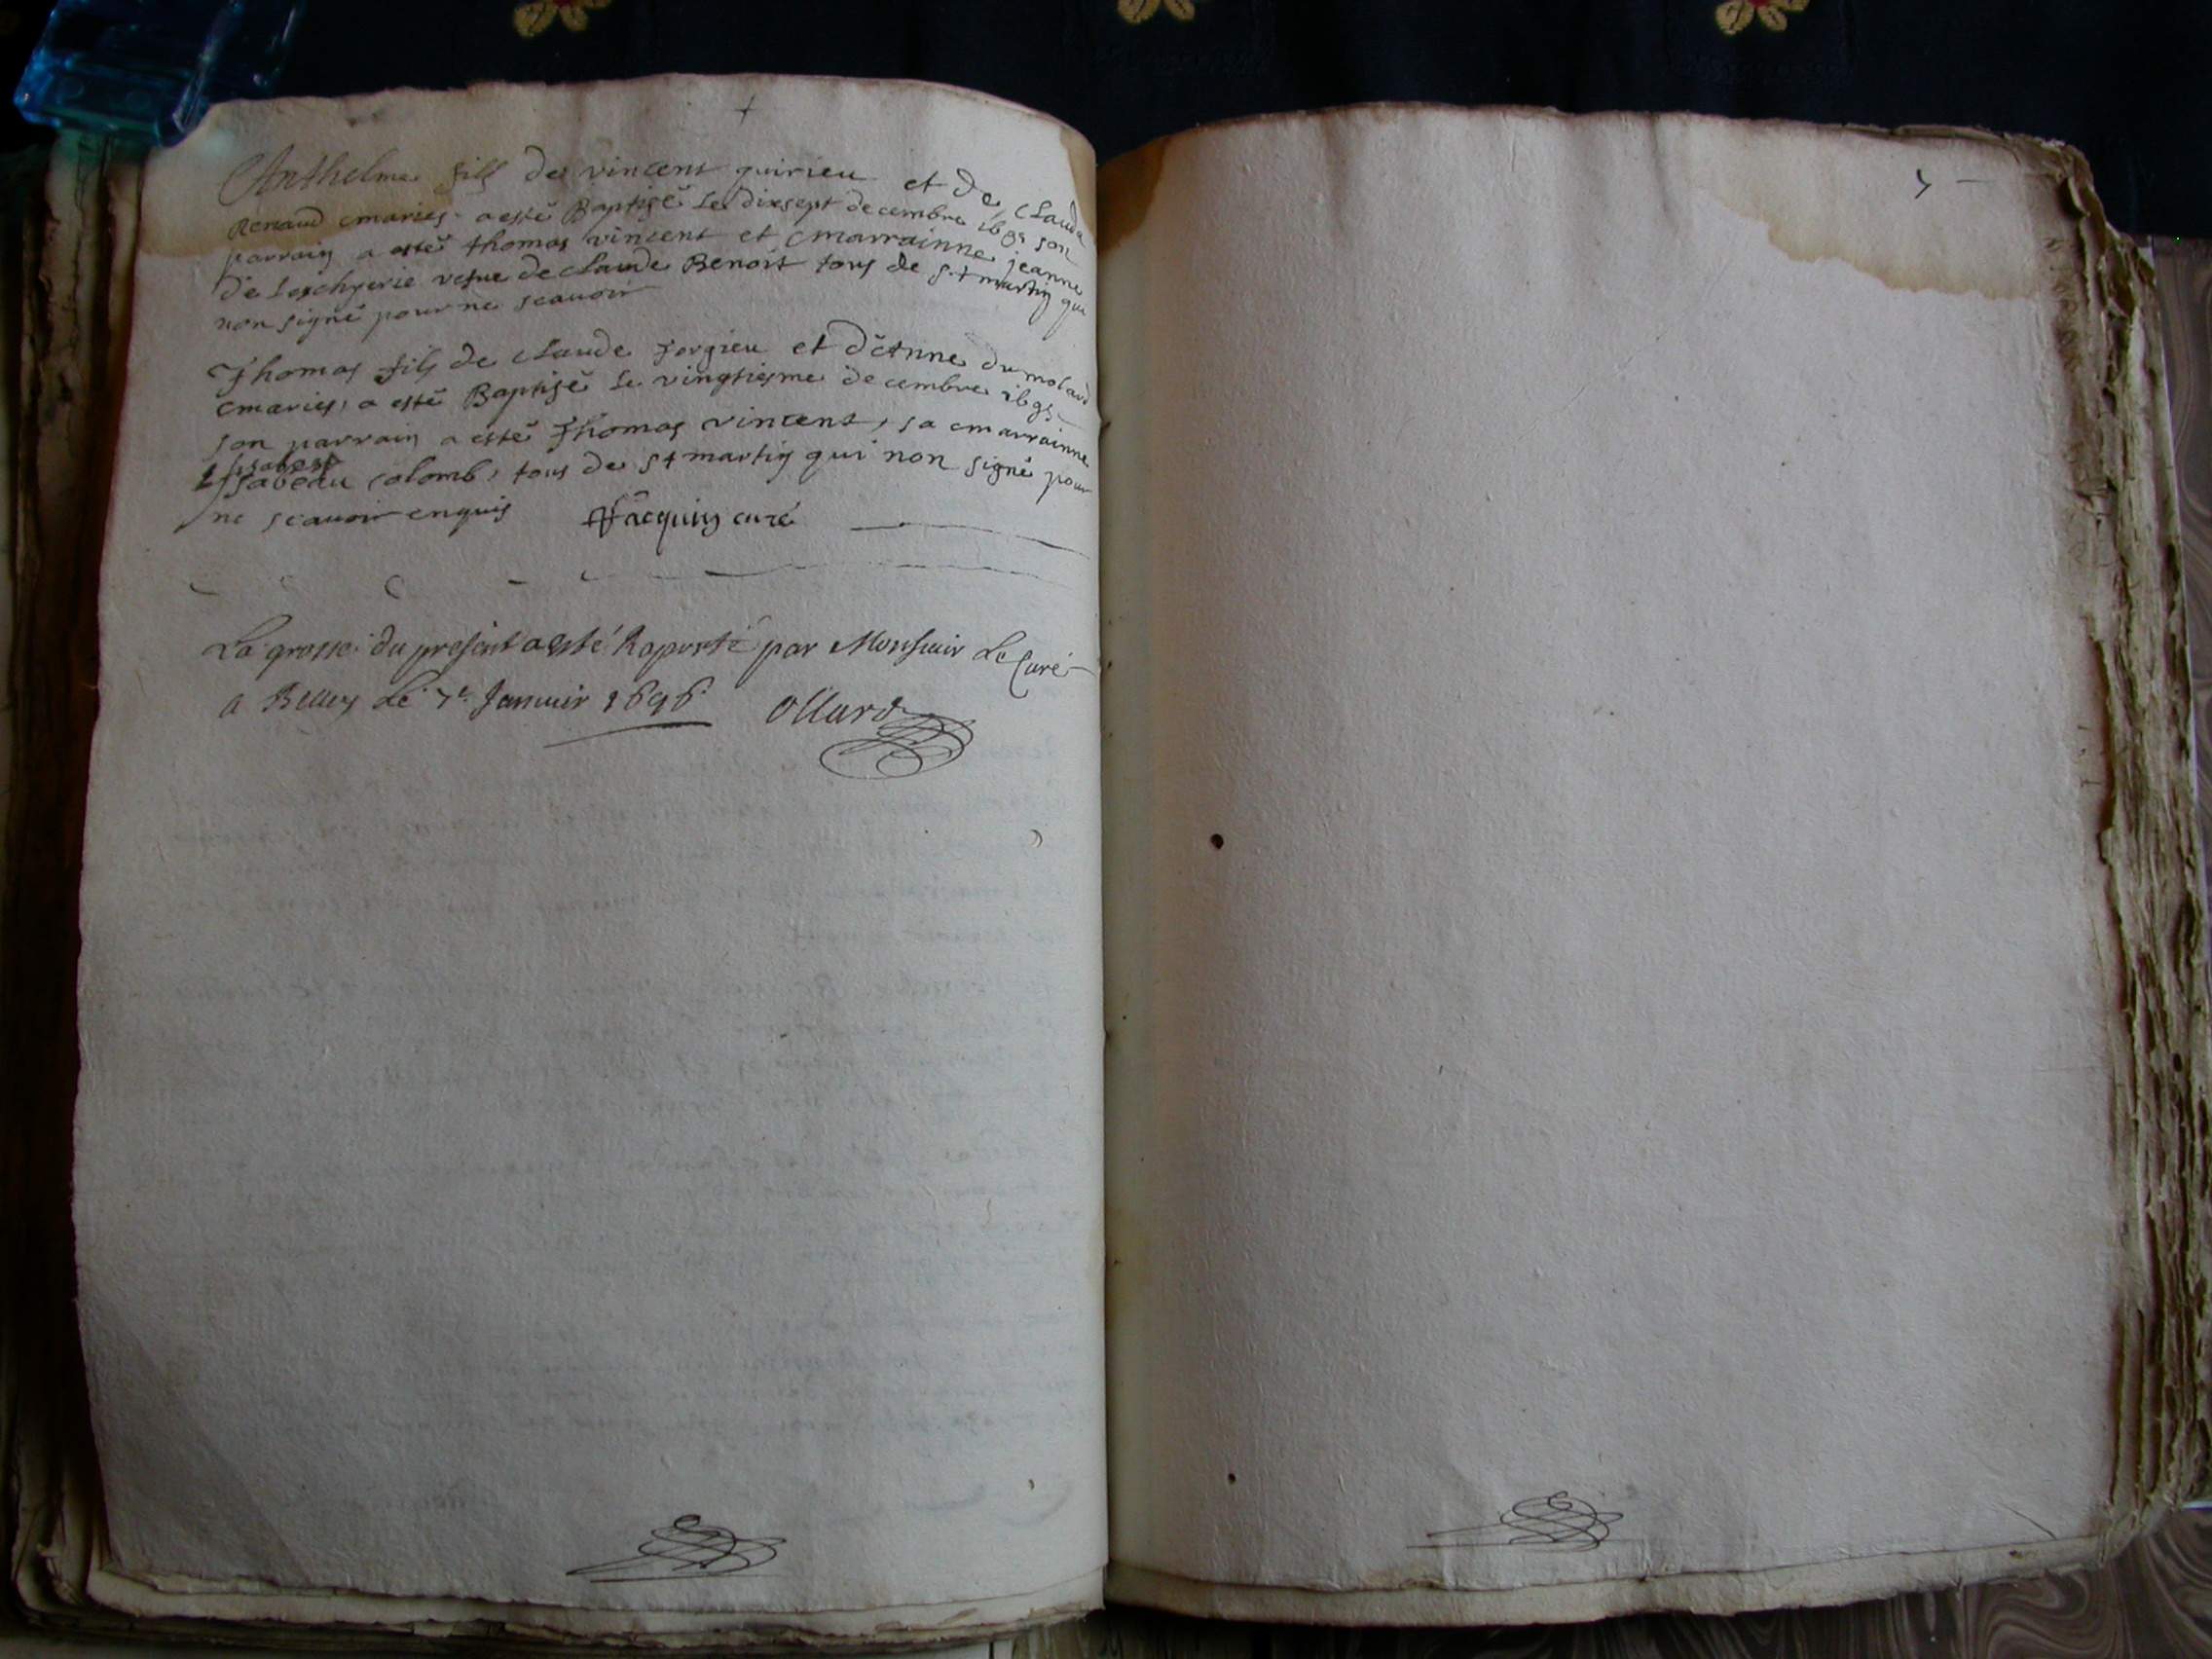 +
Anthelme fils de vincent quirieu et de Clauda
Renaud maries a esté Baptisé le dixsept decembre 1695 son
parrain a esté thomas vincent et marrainne jeanne
de vefue de claude Benoit tous de st martin qui
non signé pour ne scauoir
Thomas fils de claude forgieu et d'Anne du molard
maries, a esté Baptisé le vingtiesme decembre 1695
son parrain a esté Thomas vincent, sa marrainne
Isabeau Colomb, tous de st martin qui non signé pour
ne scauoir enquis Jacquin curé
La grosse du present a esté Raporté par Monsieur Le Curé
a Belley Le 7e Januier 1696 Ollard
7